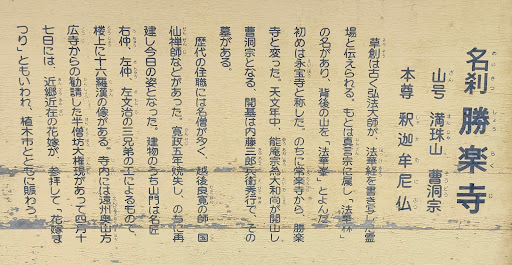 名刹 勝楽寺
山号 満珠山 曹洞宗
本尊 釈迦牟尼仏
草創は古く弘法大師が、法華経を書き写した霊
場と伝えられる。もとは真言宗に属し「法華林」
の名があり、背後の山を「法華峯」とよんだ。
初めは永宝寺と称した。のちに常楽寺から、勝楽
寺と変った。天文年中、能庵宗為大和尚が開山し
曹洞宗となる、開墓は内藤三郎兵衛秀行で、その
墓がある。
歴代の住職には名僧が多く、越後良寛の師、国
仙禅師などがあった。寛政五年焼失し、のちに再
建し今日の姿となった。建物のうち山門は名匠
右仲、左仲、左文治の三兄弟の工によるもので、
楼上に十六羅漢の像がある。寺内には遠州奥山方
広寺からの勧請した半僧坊大権現があって四月十
七日には、近郷近在の花嫁が、参拝して、花嫁ま
つり」ともいわれ、植木市とともに賑わう。